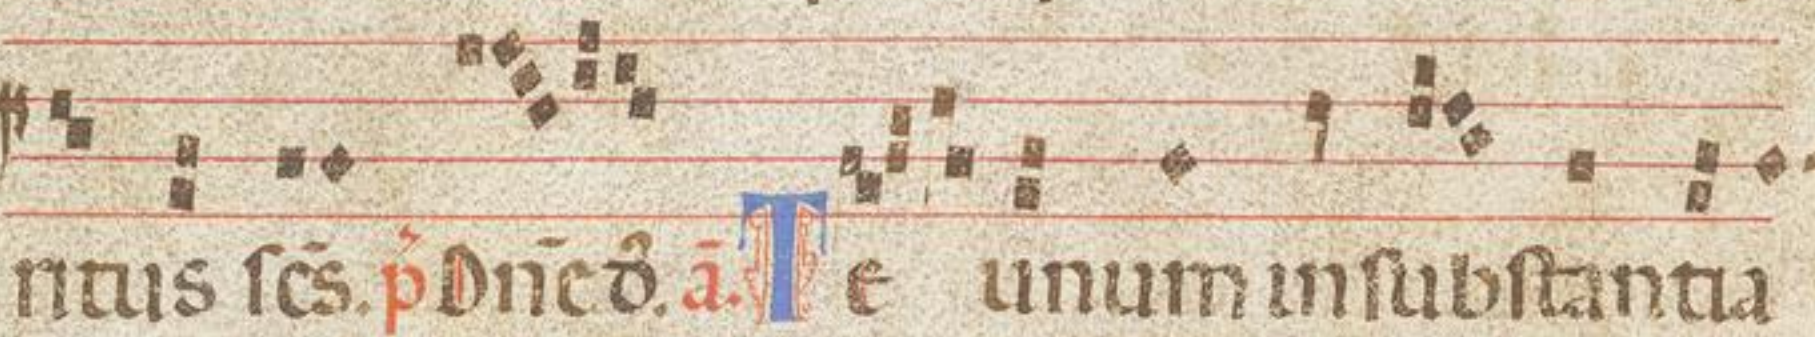 ritus sc̄s. p̓ Dn̄e d̓. ā. Te unum in substantia